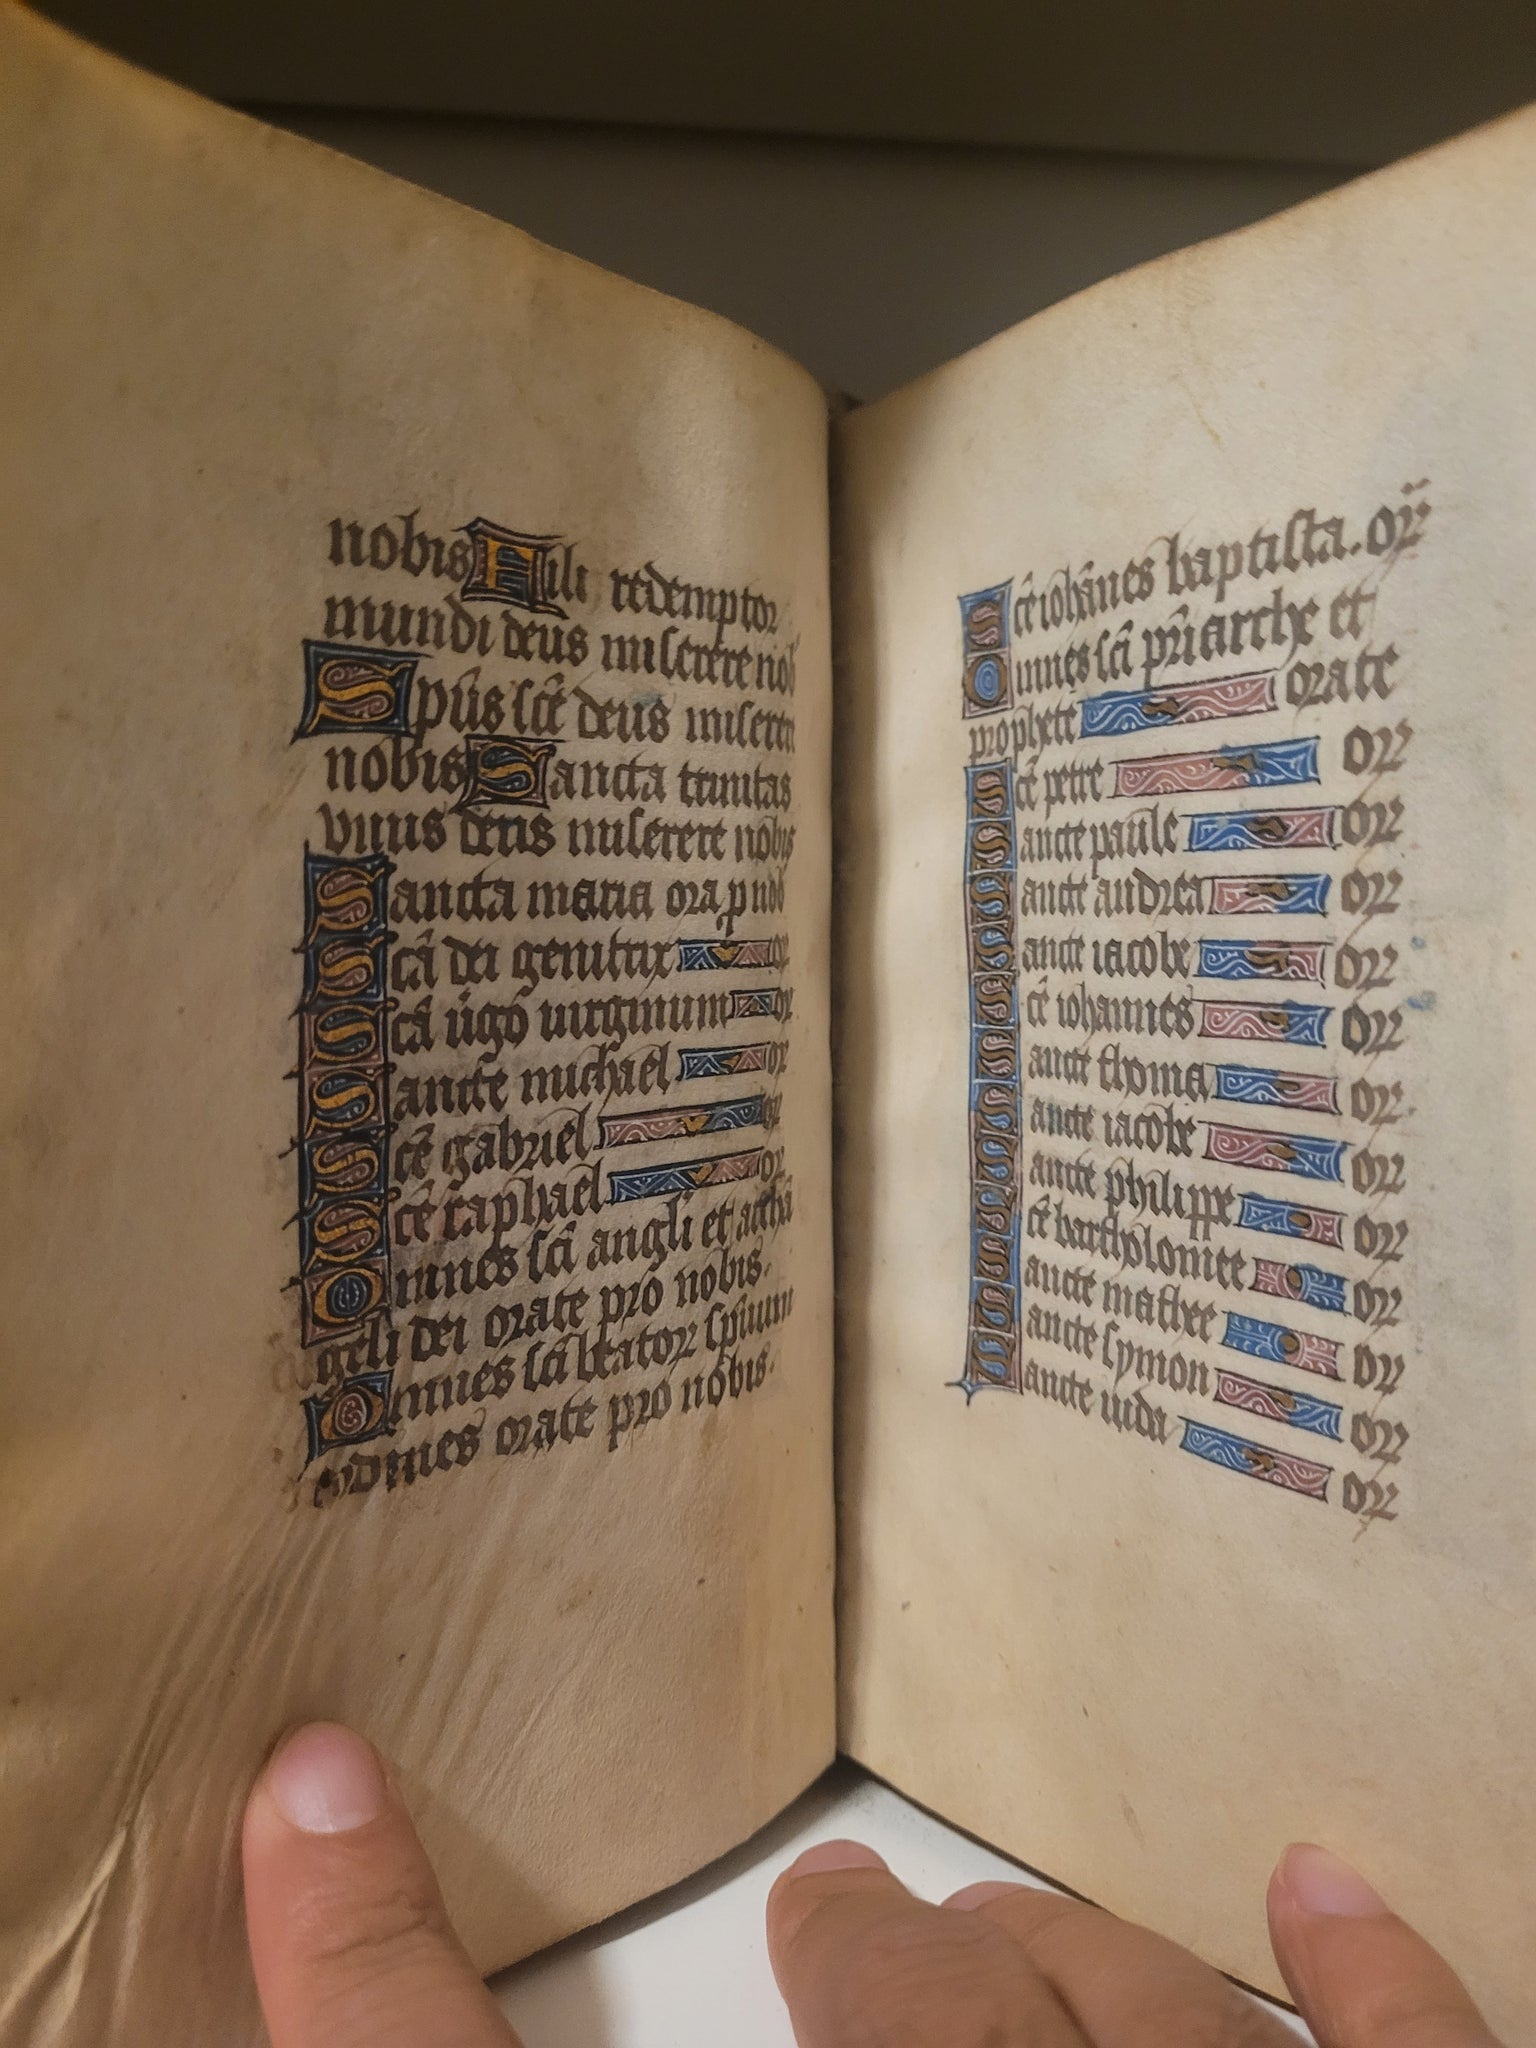 nobis Fili redemptor
mundi deus miserere nob
Sp̃us sc̃e deus miserere
nobis Sancta trinitas
vnus deus miserere nobis
Sancta maria ora p nob
Sc̃a dei genitrix or
Sc̃a ũgo uirginum or
Sancte michael or
Sc̃e gabriel or
Sc̃e raphael or
Omnes sc̃i angli et archã
geli dei orate pro nobis.
Omnes sc̃i beator spũum
ordines orate pro nobis.
Sc̃e ioh̃anes baptista. or
Omnes sc̃i pr̃iarche et
prophete orate
Sc̃e petre or
Sancte paule or
Sancte andrea or
Sancte iacobe or
Sc̃e iohannes or
Sancte thoma or
Sancte iacobe or
Sancte philippe or
Sc̃e bartholomee or
Sancte mathee or
Sancte symon or
Sancte iuda or